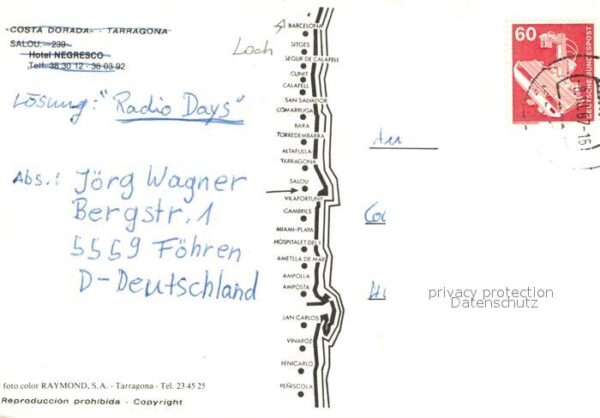 "COSTA DORADA" - TARRAGONA
SALOU. - 239
Hotel NEGRESCO
Telf. 38 30 12 - 38 03 92
Loch
Lösung: "Radio Days"
Abs.: Jörg Wagner
Bergstr. 1
5559 Föhren
D-Deutschland
foto color RAYMOND, S.A. - Tarragona - Tel. 23 45 25
Reproducción prohibida - Copyright
BARCELONA
SITGES
SEGUR DE CALAFELL
CUNIT
CALAFELL
SAN SALVADOR
COMARRUGA
BARA
TORREDEMBARRA
ALTAFULLA
TARRAGONA
SALOU
VILAFORTUNY
CAMBRILS
MIAMI-PLAYA
HOSPITALET DEL I.
AMETLLA DE MAR
AMPOLLA
AMPOSTA
SAN CARLOS
VINAROZ
BENICARLO
PEÑISCOLA
60
DEUTSCHE BUNDESPOST
An
privacy protection
Datenschutz